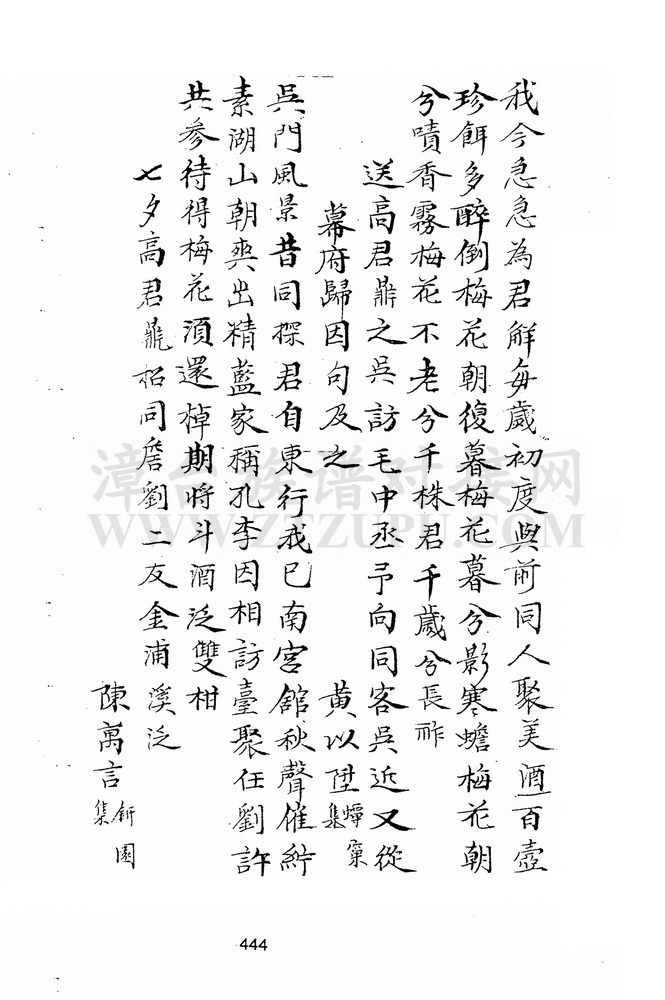 我今急急為君解每歲初度與前同人聚美酒百壺
珍餌多醉倒梅花朝復暮梅花暮兮影寒蟾梅花朝
兮噴香霧梅花不老兮千株君千歲兮長祚
送高君鼎之吳訪毛中丞予向同客吳近又從
幕府歸因句及之
黃以陞
蟬窠集
吳門風景昔同探君自東行我已南宮舘秋聲催紵
素湖山朝爽出精藍家稱孔李因相訪臺聚任劉許
共參待得梅花湏還棹期將斗酒泛雙柑
七夕高君鼎招同詹劉二友金浦溪泛
陳萬言
園集
漳台族谱对接网
WWW.ZTZUPU.COM
444